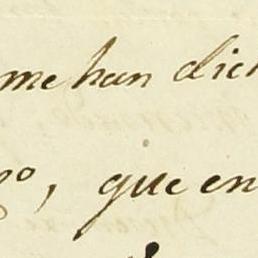 me han dich
go, que en